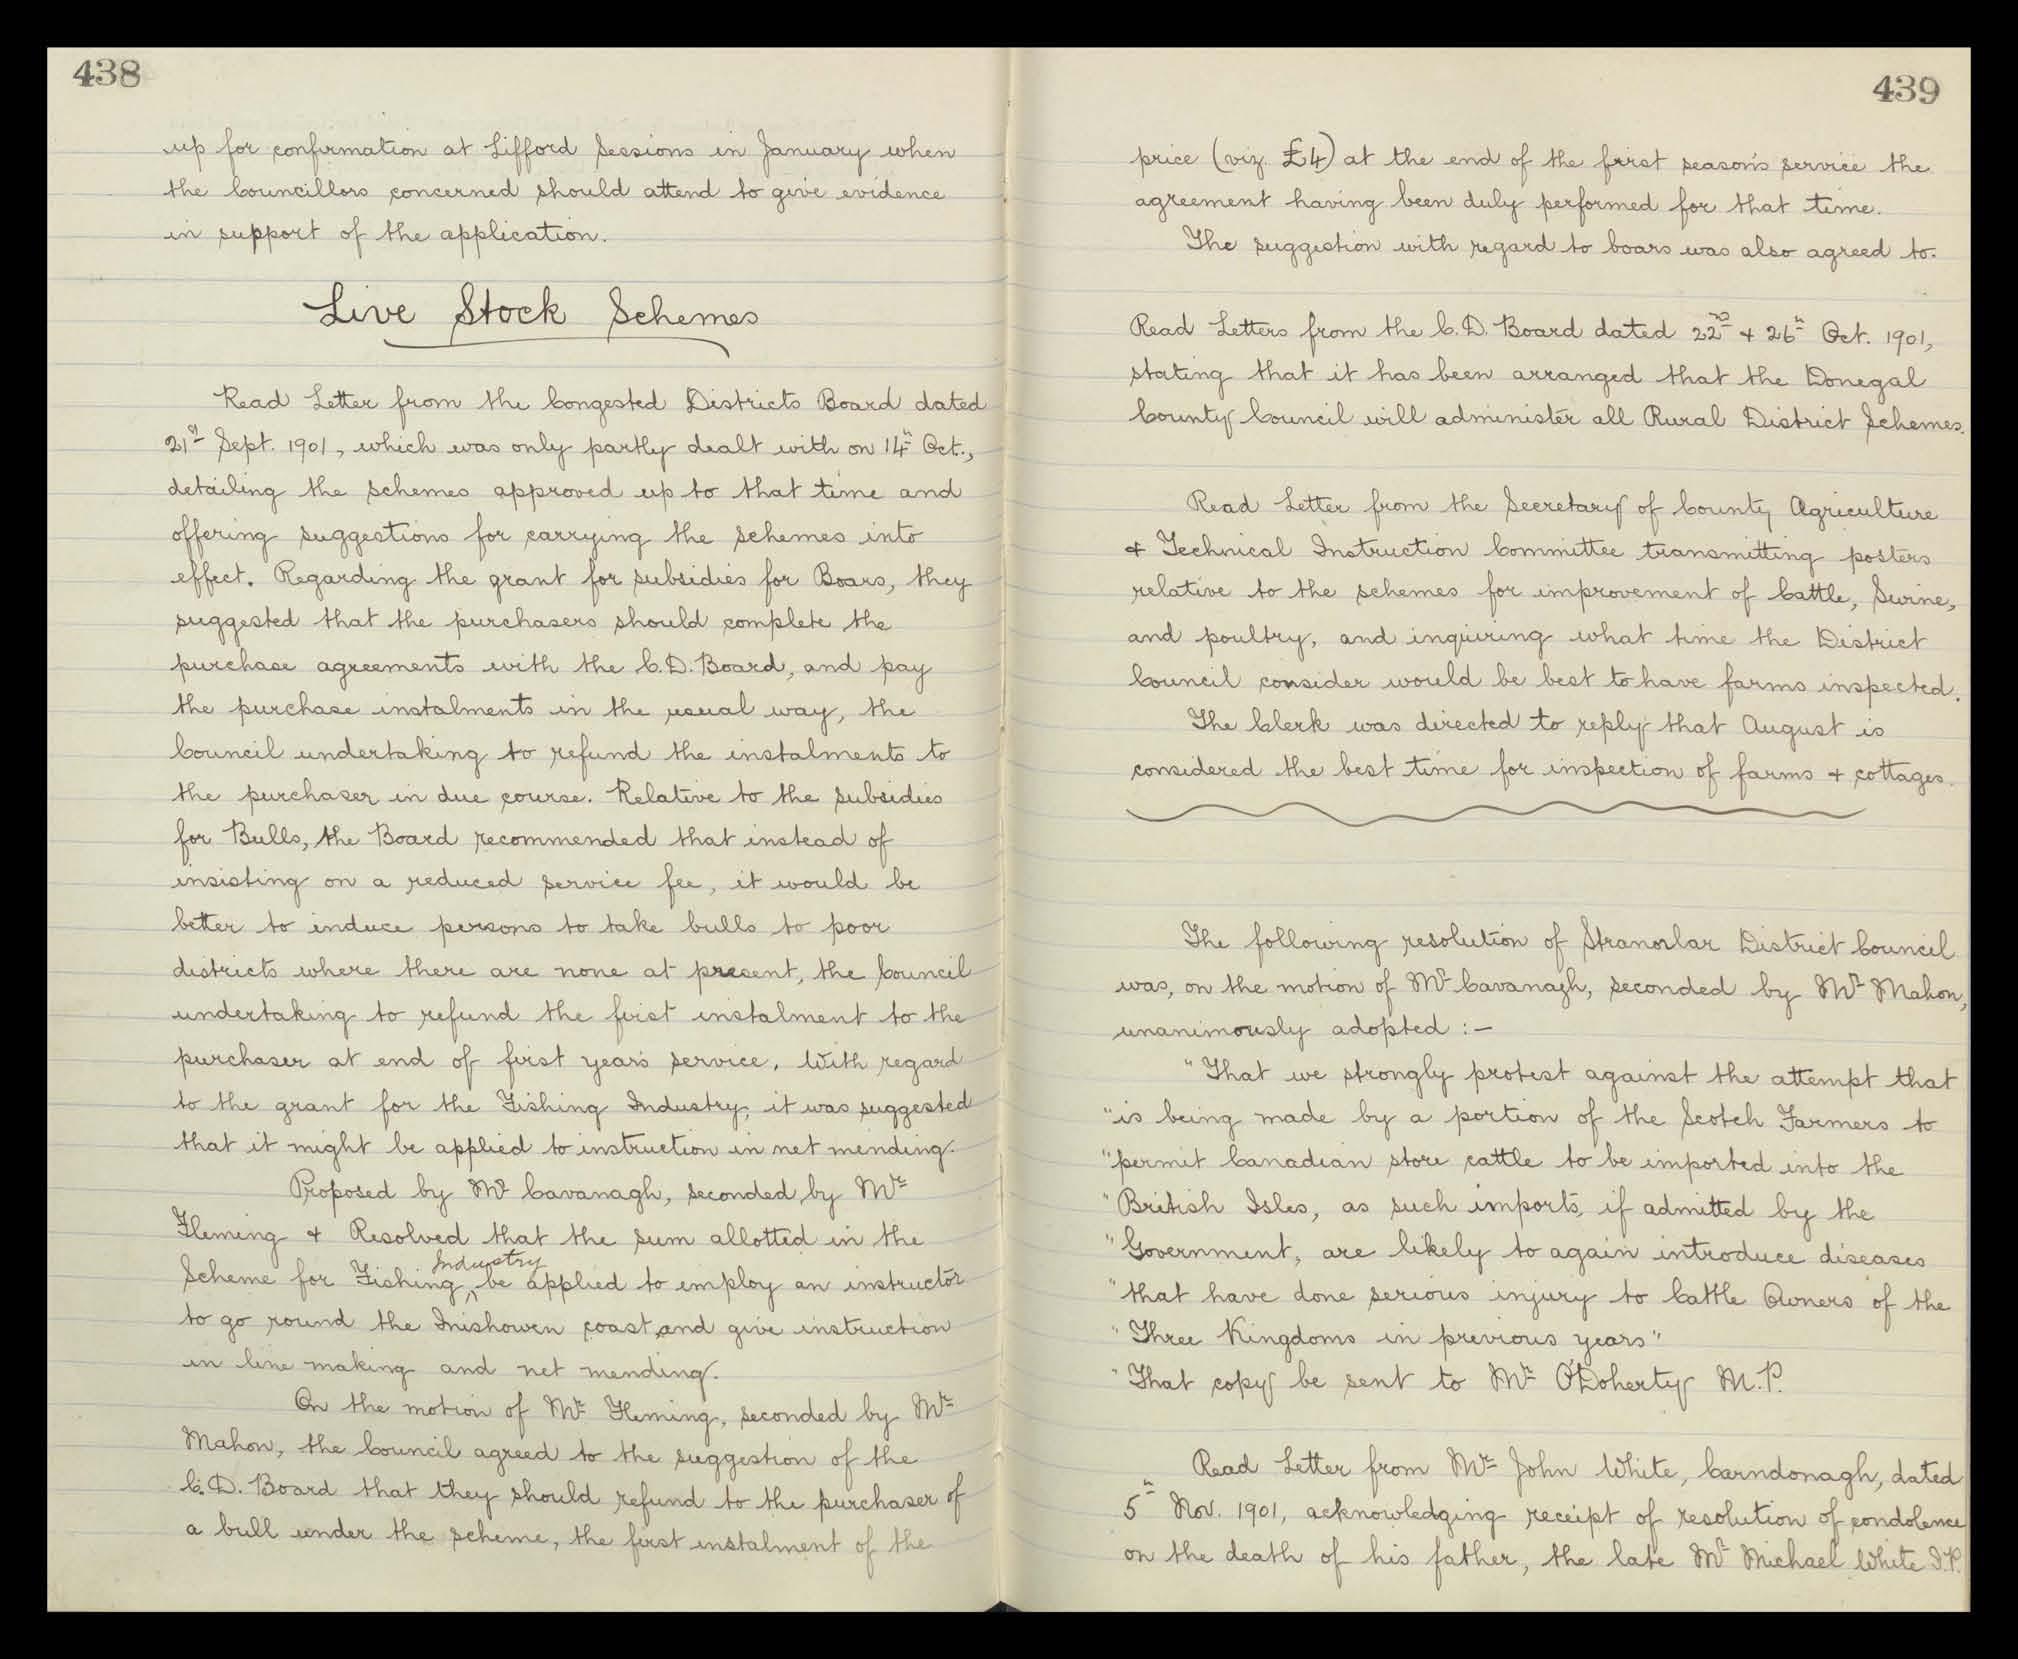 438
up for confirmation at Lifford Sessions in January when
the Councillors concerned should attend to give evidence
in support of the application.
Live Stock Schemes
Read Letter from the Congested Districts Board dated
21st Sept. 1901, which was only partly dealt with on 14th Oct.,
detailing the schemes approved up to that time and
offering suggestions for carrying the schemes into
effect. Regarding the grant for subsidies for Boars, they
suggested that the purchasers should complete the
purchase agreements with the C.D. Board, and pay
the purchase instalments in the usual way, the
Council undertaking to refund the instalments to
the purchaser in due course. Relative to the subsidies
for Bulls, the Board recommended that instead of
insisting on a reduced service fee, it would be
better to induce persons to take bulls to poor
districts where there are none at present, the Council
undertaking to refund the first instalment to the
purchaser at end of first year's service. With regard
to the grant for the Fishing Industry, it was suggested
that it might be applied to instruction in net mending.
Proposed by Mr Cavanagh, seconded by Mr
Fleming & Resolved that the sum allotted in the
Scheme for Fishing Industry be applied to employ an instructor
to go round the Inishowen coast and give instruction
in line making and net mending.
On the motion of Mr Fleming, seconded by Mr
Mahon, the Council agreed to the suggestion of the
C.D. Board that they should refund to the purchaser of
a bull under the scheme, the first instalment of the
439
price (viz. £4) at the end of the first season's service the
agreement having been duly performed for that time.
The suggestion with regard to boars was also agreed to.
Read Letters from the C.D. Board dated 22nd & 26th Oct. 1901,
stating that it has been arranged that the Donegal
County Council will administer all Rural District Schemes.
Read Letter from the Secretary of County Agriculture
& Technical Instruction Committee transmitting posters
relative to the schemes for improvement of Cattle, Swine,
and poultry, and inquiring what time the District
Council consider would be best to have farms inspected.
The Clerk was directed to reply that August is
considered the best time for inspection of farms & cottages.
The following resolution of Stranorlar District Council
was, on the motion of Mr Cavanagh, seconded by Mr Mahon,
unanimously adopted :-
"That we strongly protest against the attempt that
"is being made by a portion of the Scotch Farmers to
"permit Canadian store cattle to be imported into the
"British Isles, as such imports, if admitted by the
"Government, are likely to again introduce diseases
"that have done serious injury to Cattle Owners of the
"Three Kingdoms in previous years"
"That copy be sent to Mr O'Doherty M.P.
Read Letter from Mr John White, Carndonagh, dated
5th Nov. 1901, acknowledging receipt of resolution of condolence
on the death of his father, the late Mr Michael White J.P.